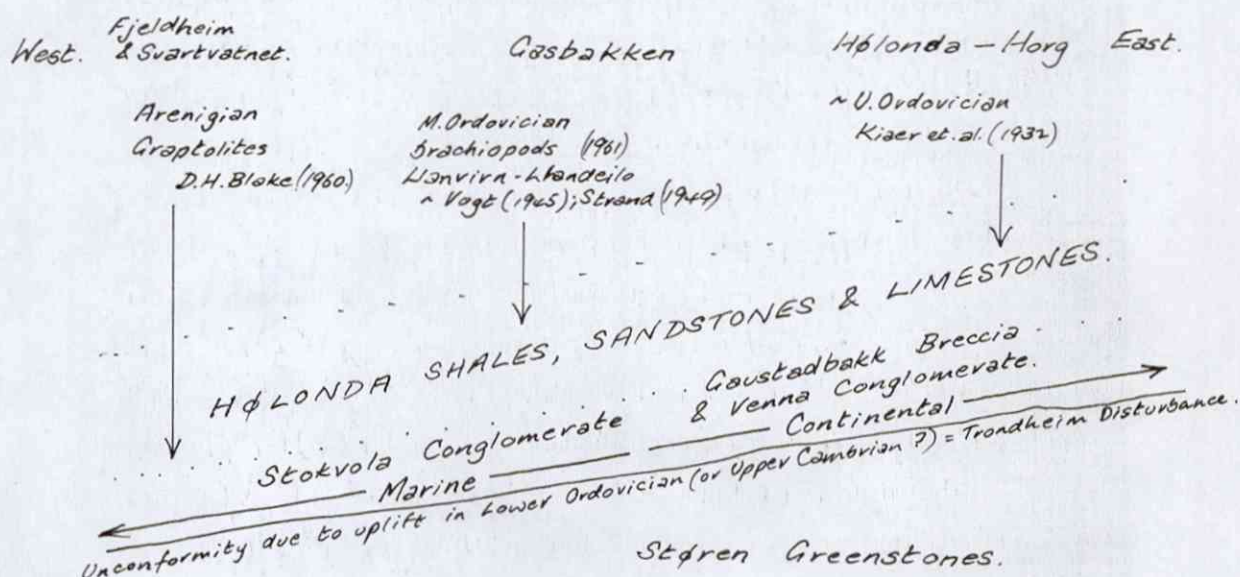 West.
Fjeldheim
& Svartvatnet.
Gasbakken
Hølonda - Horg
East.
Arenigian
Graptolites
D.H.Blake (1960)
M.Ordovician
Brachiopods (1961)
Llanvirn-Llandeilo
~ Vogt (1945); Strand (1949)
~ U.Ordovician
Kiaer et.al. (1932)
HØLONDA SHALES, SANDSTONES & LIMESTONES.
Stokvola Conglomerate
Gaustadbakk Breccia
& Venna Conglomerate.
Marine
Continental
Unconformity due to uplift in Lower Ordovician (or Upper Cambrian ?) = Trondheim Disturbance.
Støren Greenstones.